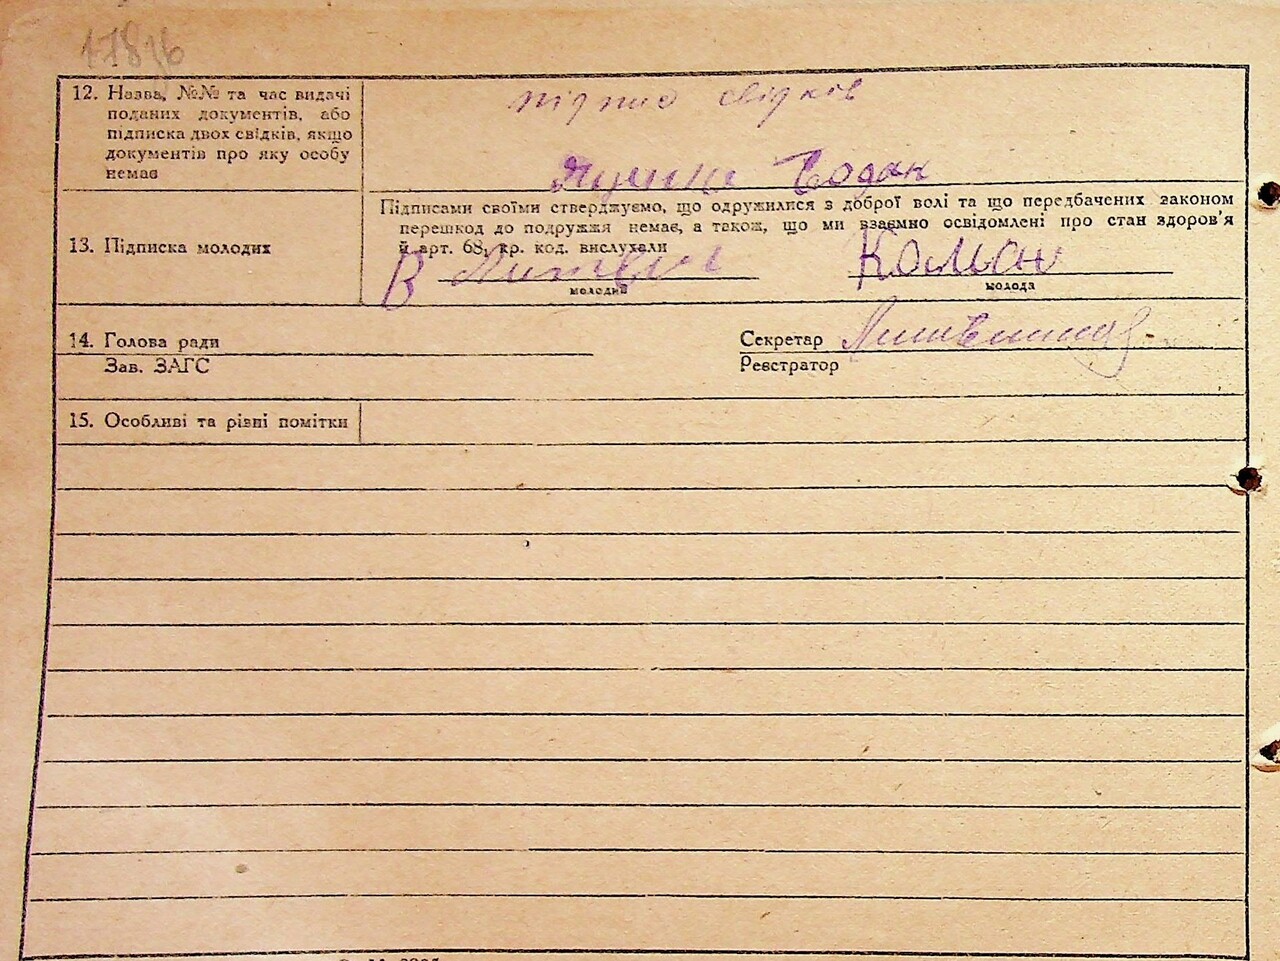 178
12. Назва, №№ та час видачі
поданих документів, або
підписка двох свідків, якщо
документів про яку особу
немає
підпис свідків
Бодак
Підписами своїми стверджуємо, що одружилися з доброї волі та що передбачених законом
перешкод до подружжя немає, а також, що ми взаємно освідомлені про стан здоров'я
й арт. 68, кр. код. вислухали
13. Підписка молодих
В Литвин Коман
молодий молода
14. Голова ради Секретар
Зав. ЗАГС Реєстратор
15. Особливі та різні помітки